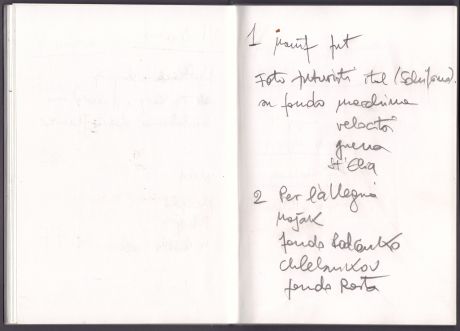 1 Manif fut
Foto futuristi ital (Schifano).
su fondo macchina
velocità
guerra
St'Elia
2 Per la
Majak
fondo
Chlebnikov
fondo Rosta